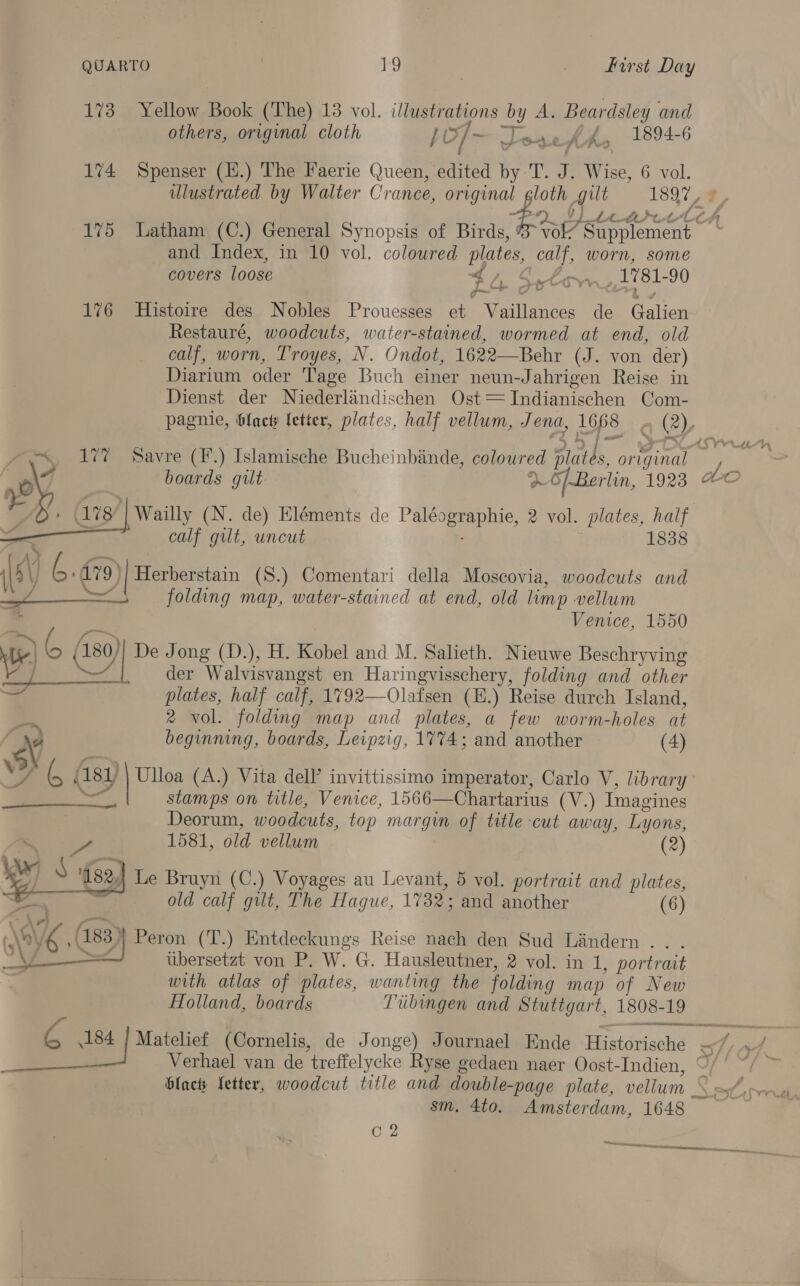 QUARTO 19 First Day
173 Yellow Book (The) 13 vol. illustrations by A. Beardsley and
others, original cloth 1894-6
174 Spenser (E.) The Faerie Queen, edited by T. J. Wise, 6 vol.
illustrated by Walter Crance, original cloth gilt 1897
175 Latham (C.) General Synopsis of Birds, vol Supplement
and Index, in 10 vol. coloured plates, calf, worn, some
covers loose 1781-90
176 Histoire des Nobles Prouesses et Vaillances de Galien
Restauré, woodcuts, water-stained, wormed at end, old
calf, worn, Troyes, N. Ondot, 1622—Behr (J. von der)
Diarium oder Tage Buch einer neun-Jahrigen Reise in
Dienst der Niederländischen Ost=Indianischen Com-
pagnie, black letter, plates, half vellum, Jena, 1668 (2)
177 Savre (F.) Islamische Bucheinbände, coloured plates, original
boards gilt Berlin, 1923
178 Wailly (N. de) Eléments de Paléographie, 2 vol. plates, half
calf gilt, uncut 1838
6 179 Herberstain (S.) Comentari della Moscovia, woodcuts and
folding map, water-stained at end, old limp vellum
Venice, 1550
6 180 De Jong (D.), H. Kobel and M. Salieth. Nieuwe Beschryving
der Walvisvangst en Haringvisschery, folding and other
plates, half calf, 1792—Olafsen (E.) Reise durch Island,
2 vol. folding map and plates, a few worm-holes at
beginning, boards, Leipzig, 1774; and another (4)
6 181 Ulloa (A.) Vita dell' invittissimo imperator, Carlo V, library
stamps on title, Venice, 1566—Chartarius (V.) Imagines
Deorum, woodcuts, top margin of title cut away, Lyons,
1581, old vellum (2)
182 Le Bruyn (C.) Voyages au Levant, 5 vol. portrait and plates,
old calf gilt, The Hague, 1732; and another (6)
183 Peron (T.) Entdeckungs Reise nach den Sud Ländern ...
übersetzt von P. W. G. Hausleutner, 2 vol. in 1, portrait
with atlas of plates, wanting the folding map of New
Holland, boards Tübingen and Stuttgart, 1808-19
6 184 Matelief (Cornelis, de Jonge) Journael Ende Historische
Verhael van de treffelycke Ryse gedaen naer Oost-Indien,
black letter, woodcut title and double-page plate, vellum
sm. 4to. Amsterdam, 1648
C 2